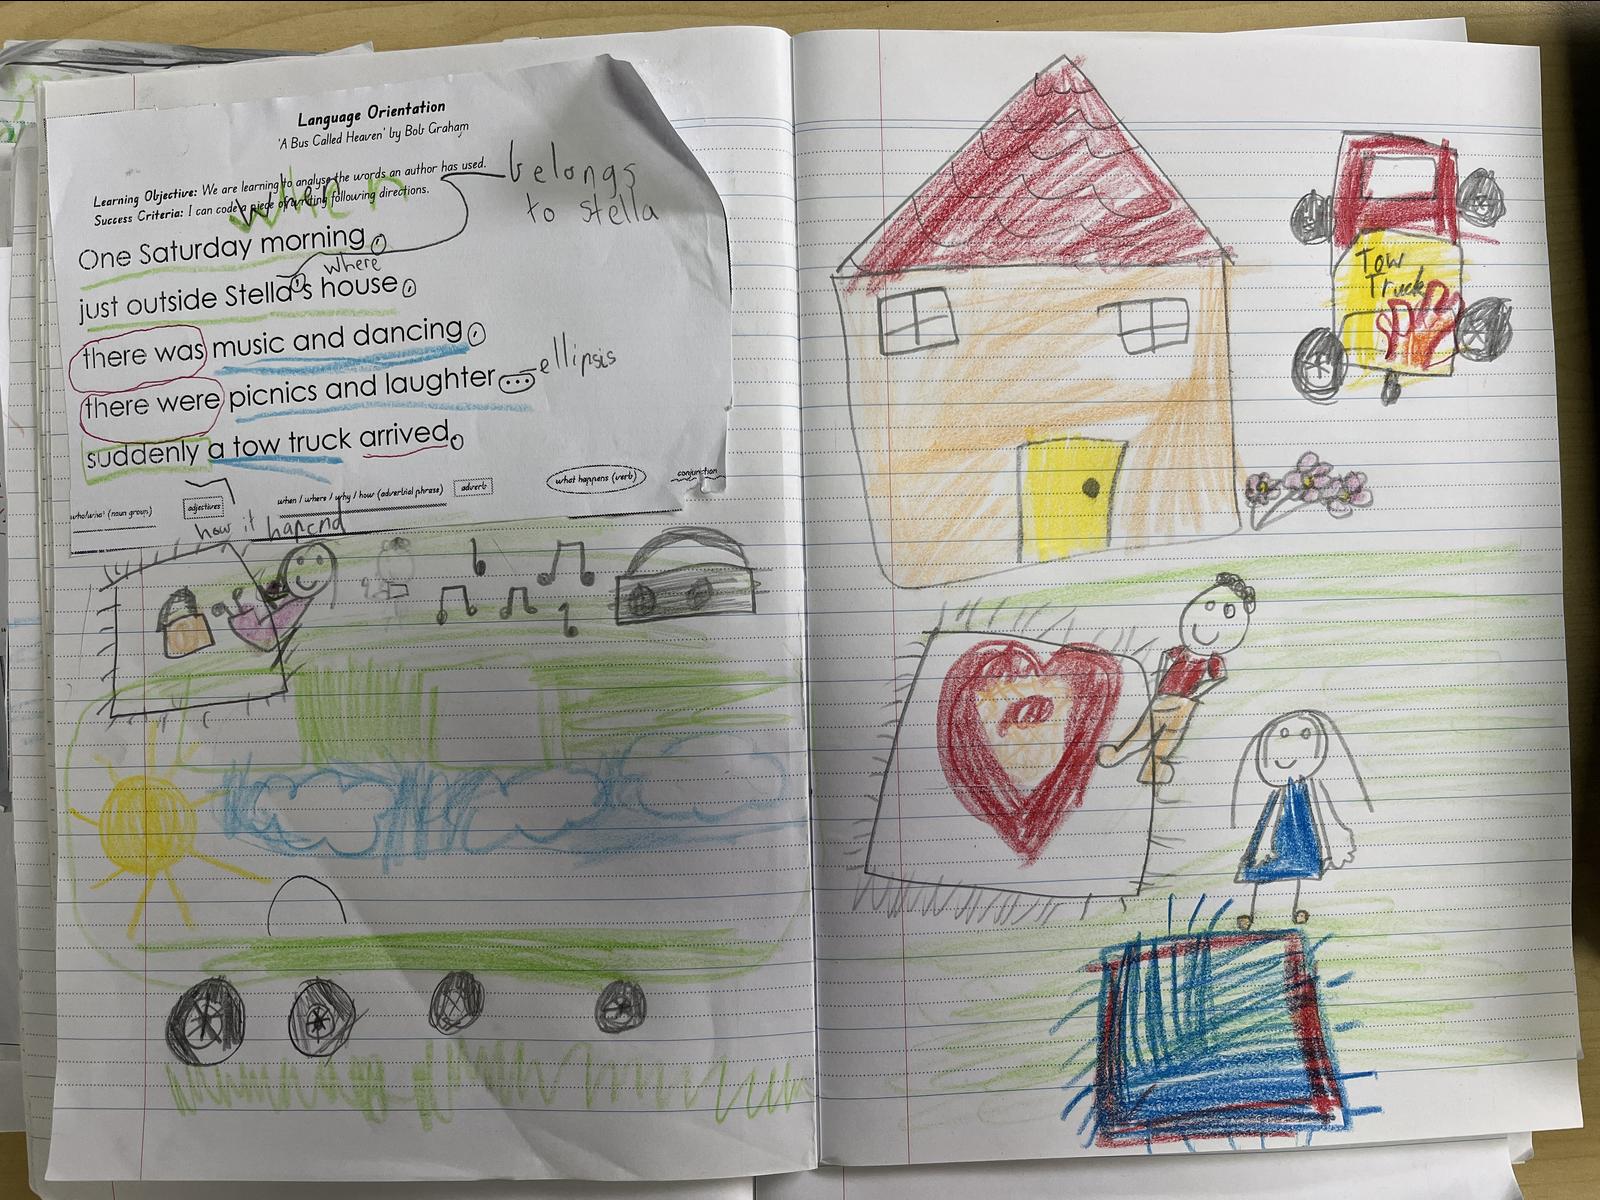 Language Orientation
'A Bus Called Heaven' by Bob Graham
Learning Objective: We are learning to analyse the words an author has used.
Success Criteria: I can code a piece of writing following directions.
when
belongs
to stella
One Saturday morning,
where
just outside Stella's house,
there was music and dancing,
there were picnics and laughter...
ellipsis
suddenly a tow truck arrived.
who/what (noun group)
adjectives
when / where / why / how (adverbial phrase)
adverb
what happens (verb)
conjunction
how it hapend
Tow
Truck